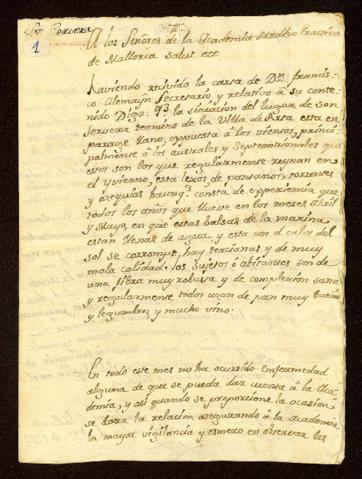 Sn. Cervera
1
A los Señores de la Academia Medico Practica
de Mallorca salut ett.
Haviendo recivido la carta de Dn. Francis-
co Alemañy Secretario, y relativo a su conte-
nido Digo: que la situacion del lugar de Son
Servera termino de la Villa de Arta esta en
parage llano, expuesta â los vientos, princi-
palmente â los australes y Septentrionales que
estos son los que regularmente reynan en
el Yvierno, esta lexos de pantanos, torrentes
y azequias haunqe. consta de experiencia que
todos los años que llueve en los meses Abril
y Mayo, en que estas balsas de la marina
estan llenas de agua, y esta con el calor del
sol se corrompe, hay tercianas y de muy
mala calidad. los sujetos ô abitantes son de
una fibra muy robusta, y de complexion sana
y regularmente todos usan de pan muy bueno
y legumbres y mucho vino.
En todo este mes no ha ocurrido Enfermedad
alguna de que se pueda dar cuenta â la Aca-
demia, y asi quando se proporcione la ocasion
se dara la relacion asegurando â la Academia
la mayor vigilancia y esmero en observar las